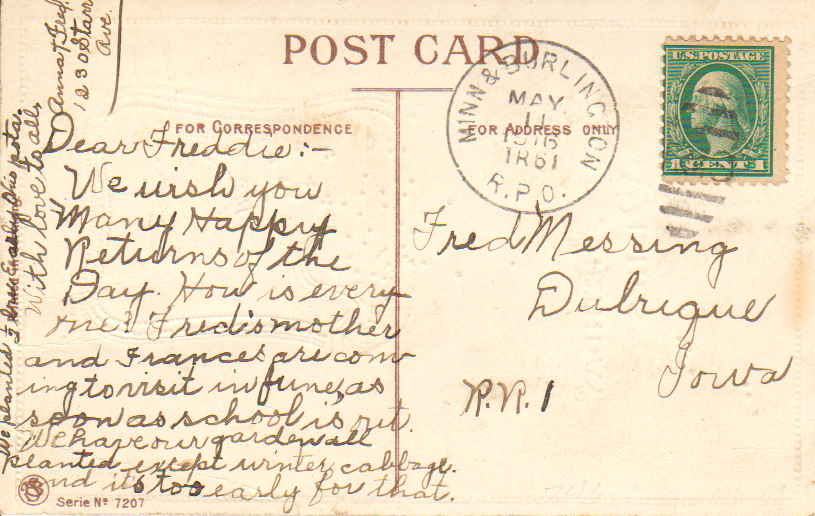 POST CARD
FOR CORRESPONDENCE
FOR ADDRESS ONLY
U.S. POSTAGE
1 CENT 1
MINN & BURLINGTON
MAY
11
1916
TR 61
R.P.O.
Dear Freddie:-
We wish you
Many Happy
Returns of the
Day. How is every
one? Fred's mother
and Frances are com
ing to visit in June, as
soon as school is out.
We have our garden all
planted except winter cabbage.
and it's too early for that.
We planted
With love to all,
Anna & Fred,
1230 Starr
Ave.
Fred Messing
Dubuque
Iowa
R.R. 1
Serie No 7207